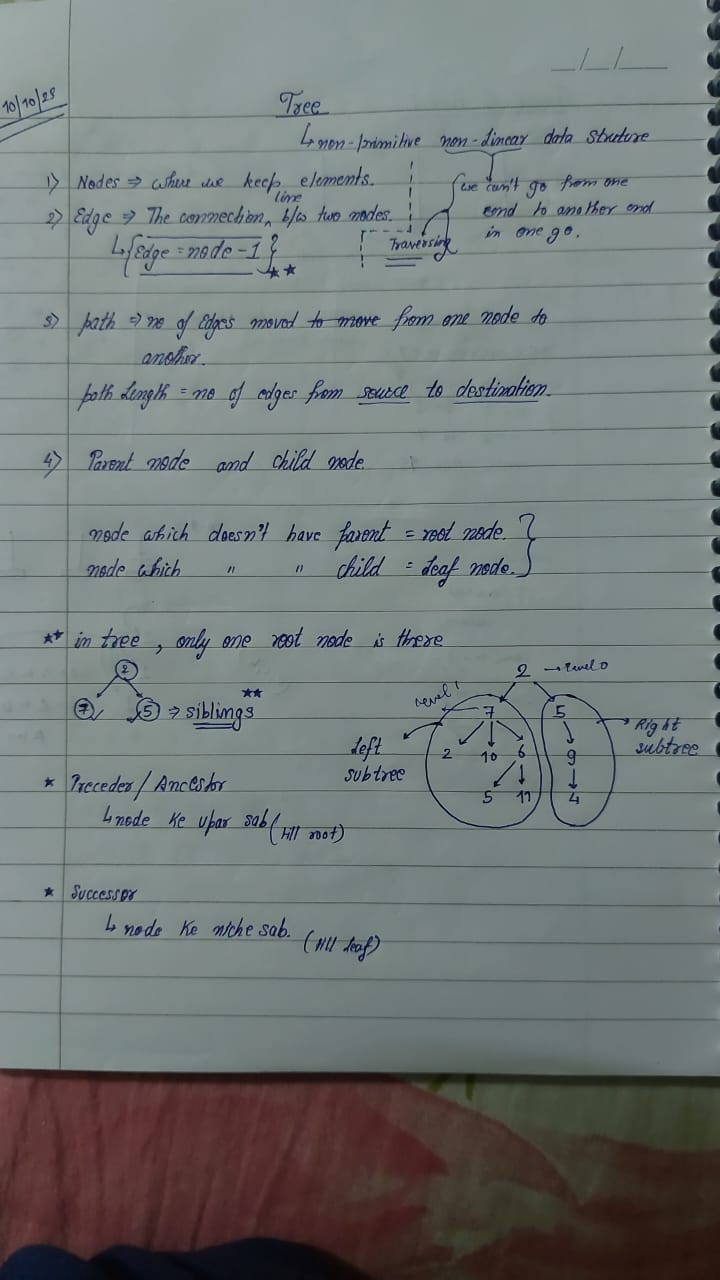 10/10/25
Tree
↳ non-primitive non-linear data struture
1) Nodes ⇒ where we keep elements.
we can't go from one
end to another end
in one go.
Traversing
line
2) Edge ⇒ The connection, b/w two nodes.
↳ {Edge = node - 1} ★★
3) path ⇒ no of Edges moved to move from one node to
another.
path Length = no of edges from source to destination.
4) Parent node and child node
node which doesn't have parent = root node.
node which " " child = Leaf node.
★★ in tree, only one root node is there
2
7 5 ⇒ siblings ★★
2 → Level 0
Level 1
7 5
Left subtree
Right subtree
2 10 6 9
5 11 4
★ Preceder / Ancestor
↳ node ke upar sab (till root)
★ Successor
↳ node ke niche sab. (till leaf)